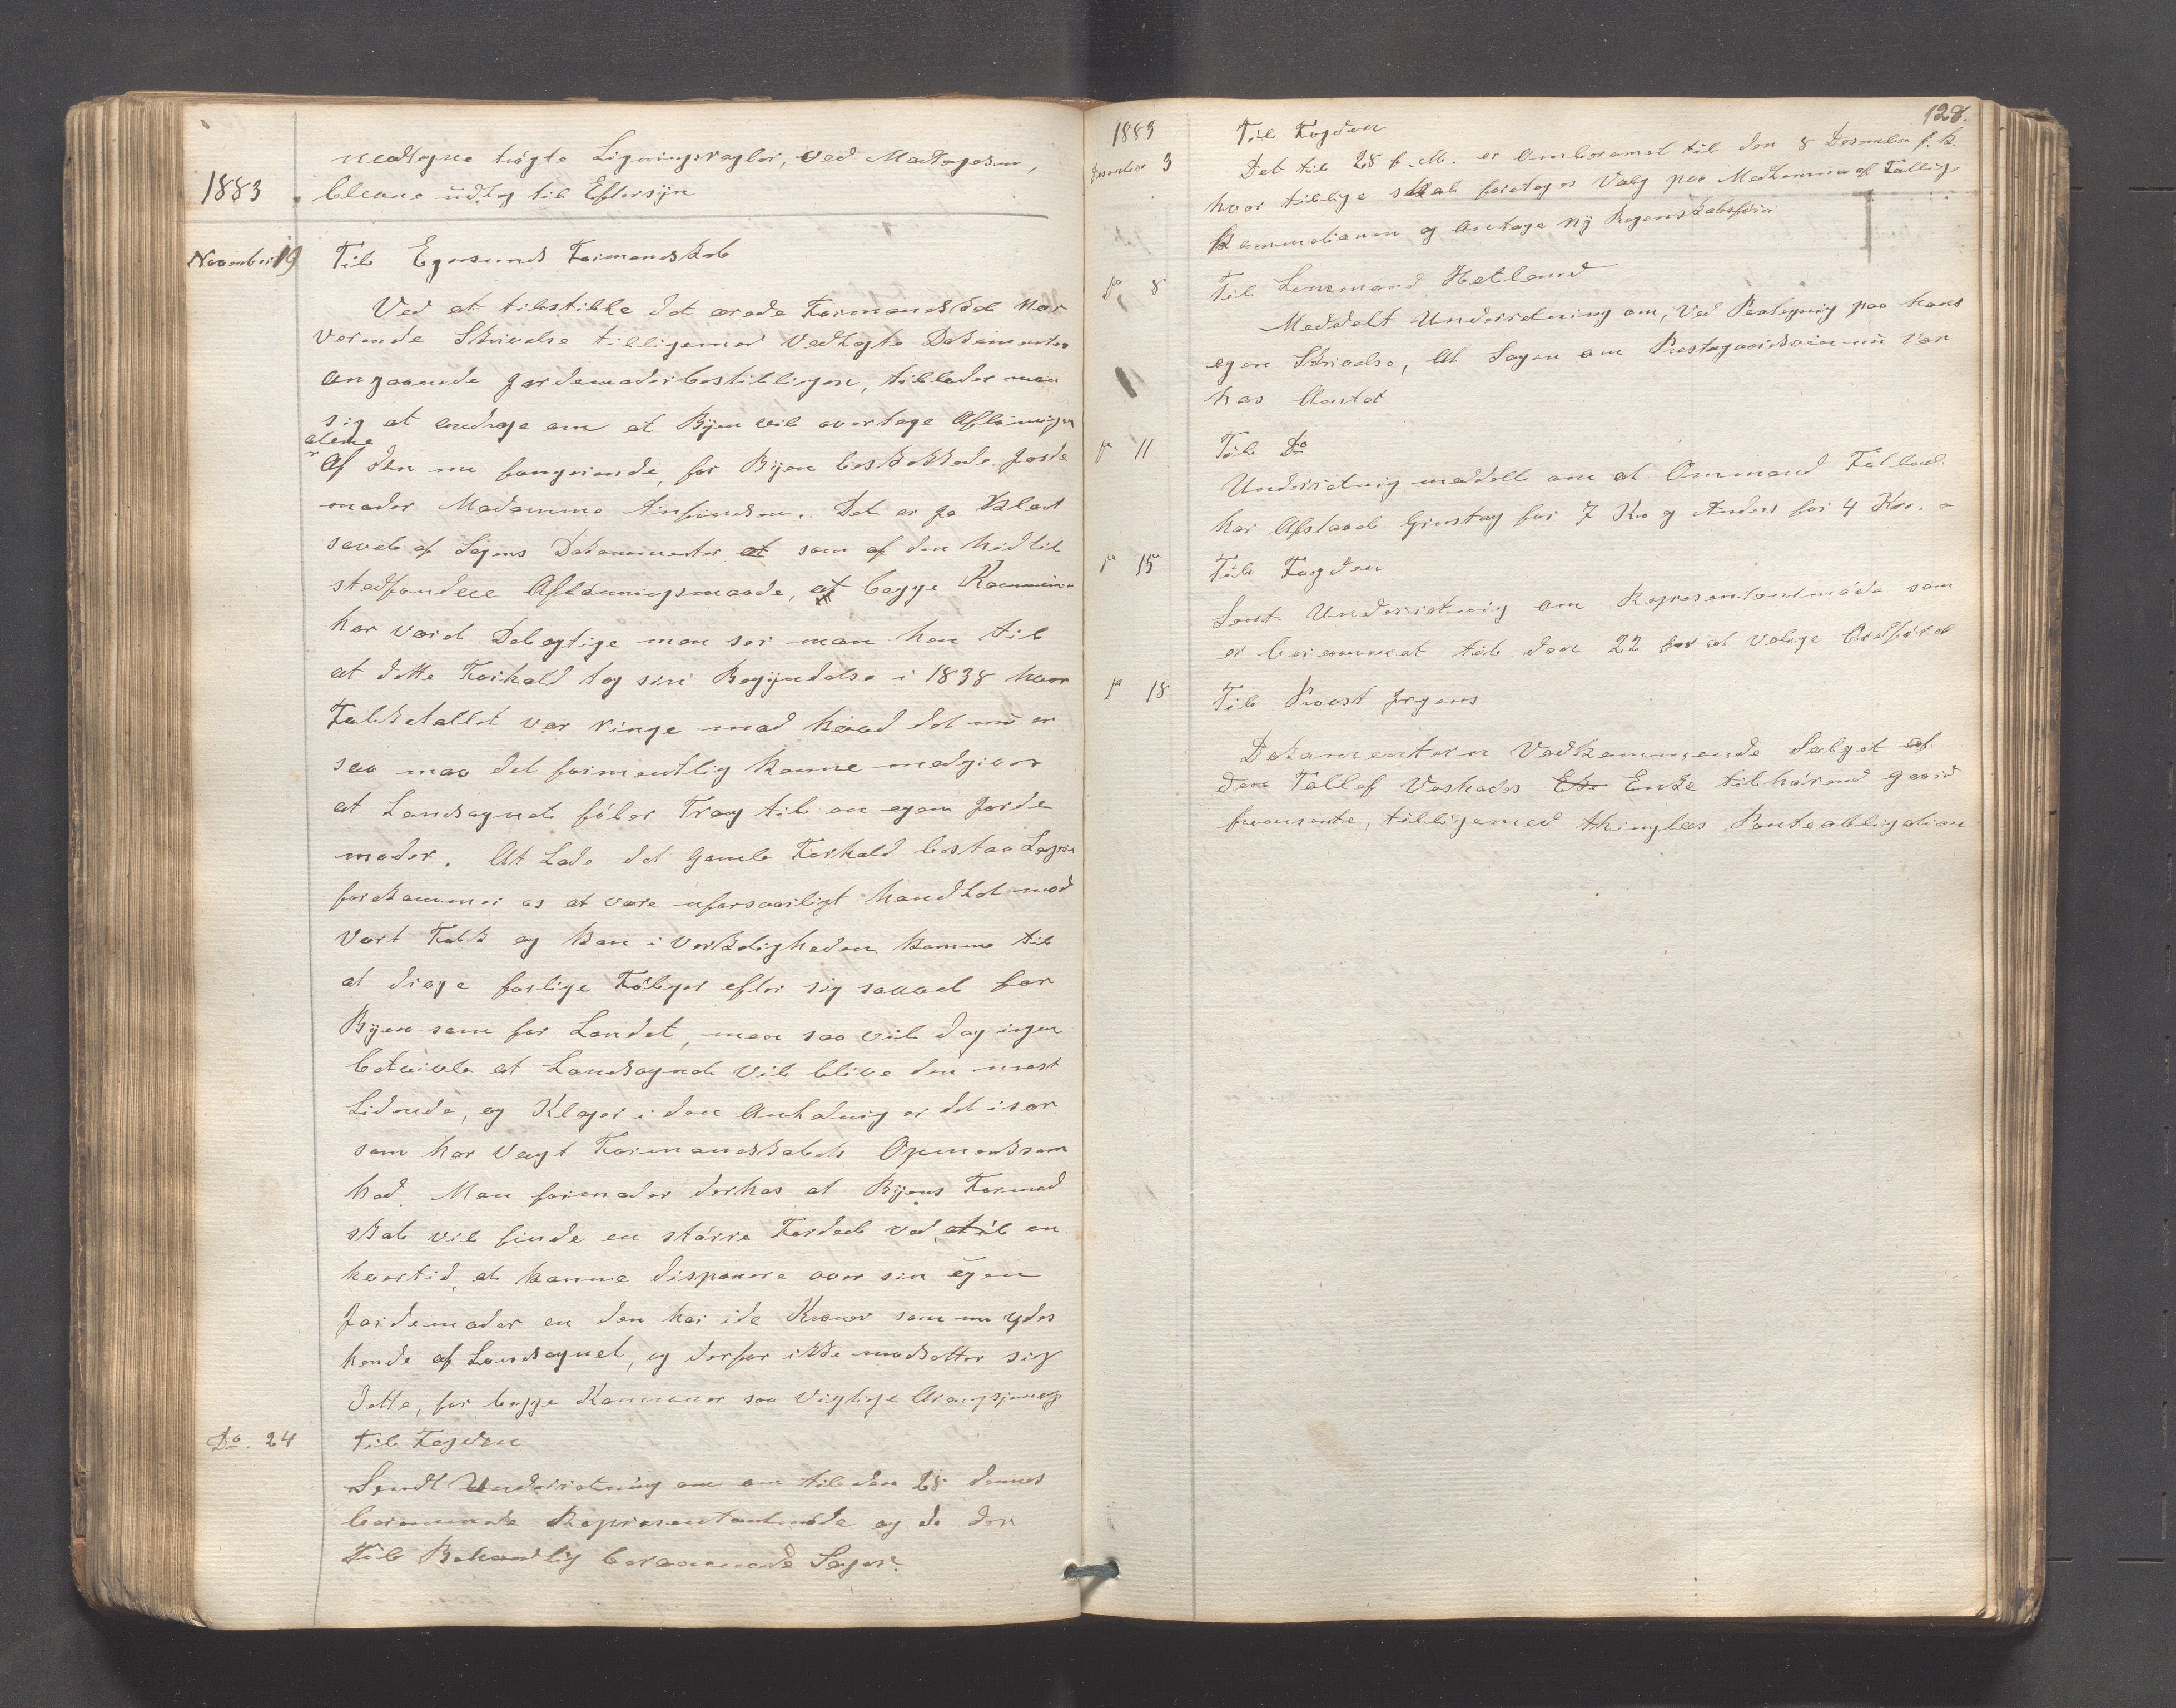 1883
vedtagne tagte Ligningsregler, ved Modtagesen,
bleane udtag til Eftersÿn
November 19
Til Egersunds Formandskab
Ved at tilstille det ærede Formandskab nær
verende Skrivelse tilligemed Vedlagte Dokumenter
angaaende Jordemoderbestillingen, tillader man
sig at andrage om at Byen vil overtage Aflønningen
alene
af den nu fungerende, for Byen beskikkede Jorde
moder Madamme Anfindsen. Det er jo klart
savel af Sagens Dokumenter at som af den hidtil
stedfundene Aflønningsmaade, at begge Kommuner
har værit Delagtige men ser man hen til
at dette Forhold tog sin Begyndelse i 1838 hvor
Folketallet var ringe mod hvad det nu er
saa maa det formentlig kunne medgives
at Landsognet føler Trang til en egen Jorde
moder. At Lade det gamle Forhold bestaa Længer
forekommer os at være uforsvarligt handlet mod
Vort Folk og kan i Verkeligheden komme til
at drage farlige Følger efter sig saavel for
Byen som for Landet, men saa vil dog ingen
betvivle at Landsognet vil blive den mest
Lidende, og Klager i den Anledning er det især
som har Vagt Formandskabets Opmerksom
hed. Man formoder derhos at Byens Formad
skab vil finde en større Fordeel ved, at til en
hvertid, at kunne disponere over sin egen
Jordemoder en den har i de Kroner som nu ydes
hende af Landsognet, og derfor ikke modsetter sig
dette, for begge Kommuner saa Vigtige Arangsjement
Do. 24
Til Fogden
Sendt Underretning om om til den 28 dennes
berammede Representantmøde og de der
til Behandlig berammede Sager.
128.
1883
Desember 3
Til Fogden
Det til 28 f. M. er Omberamet til den 8 Desember f. k.
hvor tillige skal foretages Valg paa Medlemmer af Fattig
Kommetionen og Antage nÿ Regenskabsførir
Do 8
Til Lensmand Hetland
Meddelt Underretning om, Ved Paategnig paa hans
egen Skrivelse, At Sagen om Prestegaardsveien nu Var
has Amtet
Do 11
Til Do
Underretnig meddelt om at Ommund
har Afstaaet Grustag for 7 Kr og Anders for 4 Kr.
Do 15
Til Fogden
Sent Underretnig om Representantmøde som
er berammet til den 22 for at velge Ordfører
Do 18
Til Provst Jrgens
Dokumenterne Vedkommende Salget af
den Tollef Veshades Eke Enke tilhørend gaard
fremsente, tilligemed thinglæs Panteobligation